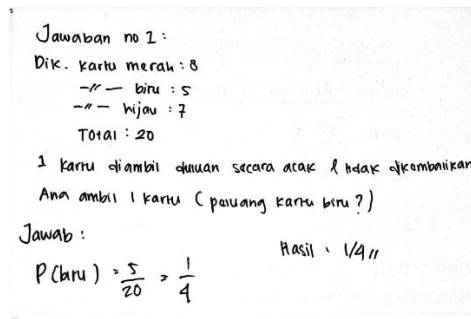 Jawaban no 1 :
Dik. kartu merah : 8
-〃- biru : 5
-〃- hijau : 7
Total : 20
1 kartu diambil duluan secara acak & tidak dikembalikan
Ana ambil 1 kartu ( peluang kartu biru ? )
Jawab :
P (biru) = 5/20 = 1/4
Hasil : 1/4 //